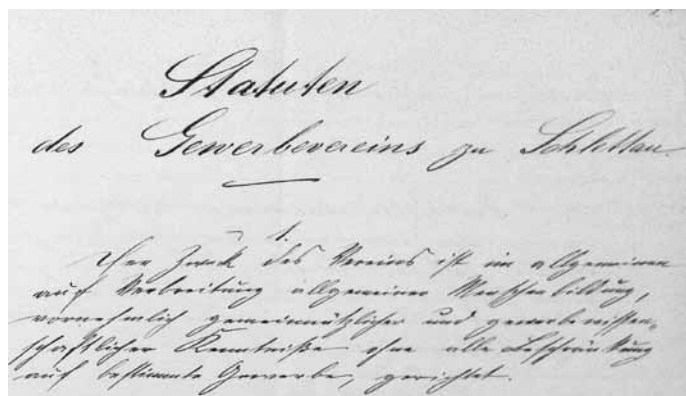 Statuten
des Gewerbevereins zu Schlettau.
1.
Der Zweck des Vereins ist im allgemeinen
auf Verbreitung allgemeiner Menschenbildung,
vornehmlich gemeinnützlicher und gewerbewissen-
schaftlicher Kenntniße ohne alle Beschränkung
auf bestimmte Gewerbe, gerichtet.